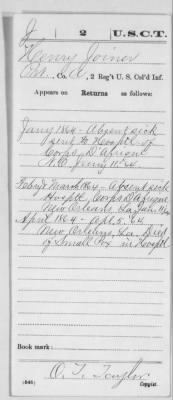 J 2 U.S.C.T.
Henry Joiner
Pvt., Co. A, 2 Reg't U. S. Col'd Inf.
Appears on Returns as follows:
Jany 1864 - Absent sick
sent to Hosptl of
Corps D'Afrique
N.O. Jany 11. 64.
Feby & March 1864 - Absent sick
Hosptl, Corps D'Afrique
New Orleans, La
April 1864 - Apl. 5, 64
New Orleans, La. Died
of Small Pox in Hosptl
Book mark:
O. T. Taylor
(546) Copyist.